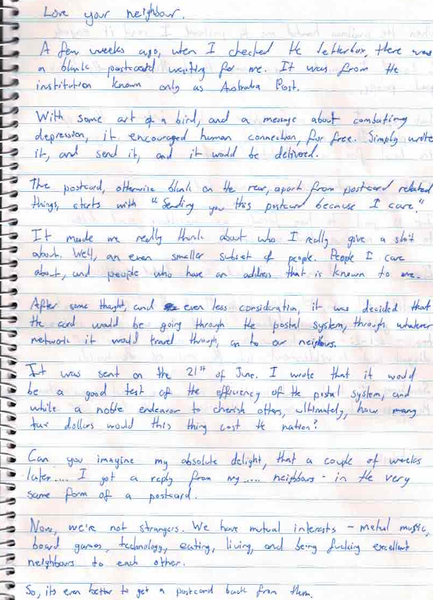 Love your neighbour.
A few weeks ago, when I checked the letterbox, there was
a blank postcard waiting for me. It was from the
institution known only as Australia Post.
With some art of a bird, and a message about combating
depression, it encouraged human connection, for free. Simply write
it, and send it, and it would be delivered.
The postcard, otherwise blank on the rear, apart from postcard related
things, starts with "Sending you this postcard because I care."
It made me really think about who I really give a shit
about. Well, an even smaller subset of people. People I care
about, and people who have an address that is known to me.
After some thought, and even less consideration, it was decided that
the card would be going through the postal system, through whatever
network it would travel through, on to our neighbors.
It was sent on the 21st of June. I wrote that it would
be a good test of the efficiency of the postal system, and
while a noble endeavor to cherish others, ultimately, how many
tax dollars would this thing cost the nation?
Can you imagine my absolute delight, that a couple of weeks
later.... I got a reply from my..... neighbours - in the very
same form of a postcard.
Now, we're not strangers. We have mutual interests - metal music,
board games, technology, eating, living, and being fucking excellent
neighbours to each other.
So, its even better to get a postcard back from them.